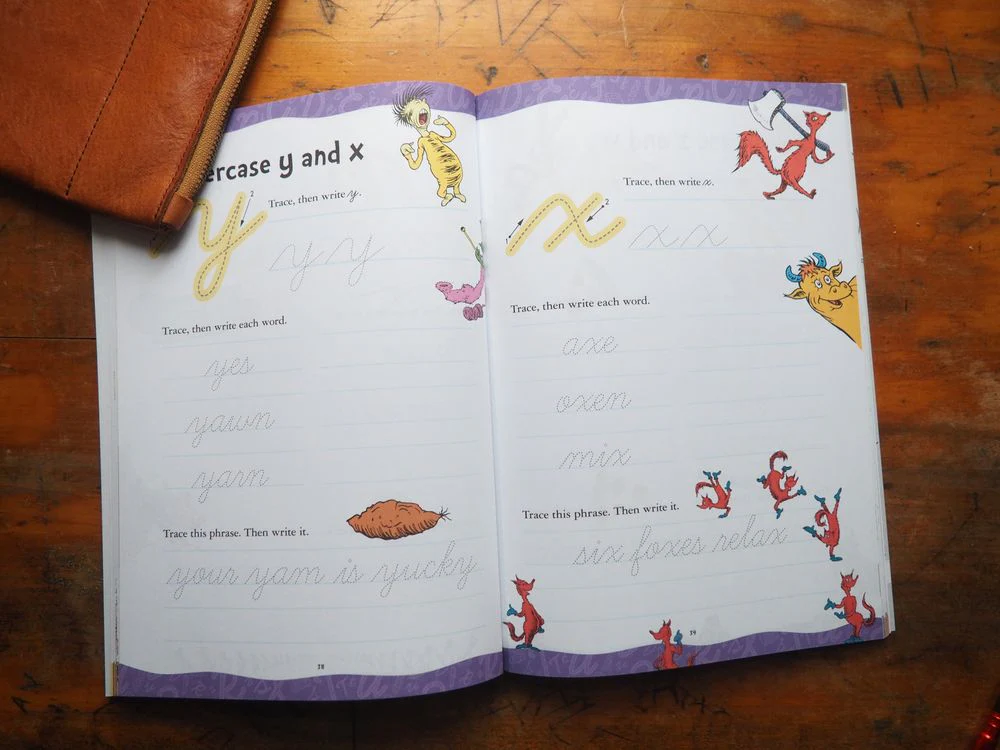 ercase y and x
2
Trace, then write y.
y
y y
Trace, then write each word.
yes
yawn
yarn
Trace this phrase. Then write it.
your yam is yucky
38
Trace, then write x.
2
x
x x
Trace, then write each word.
axe
oxen
mix
Trace this phrase. Then write it.
six foxes relax
39